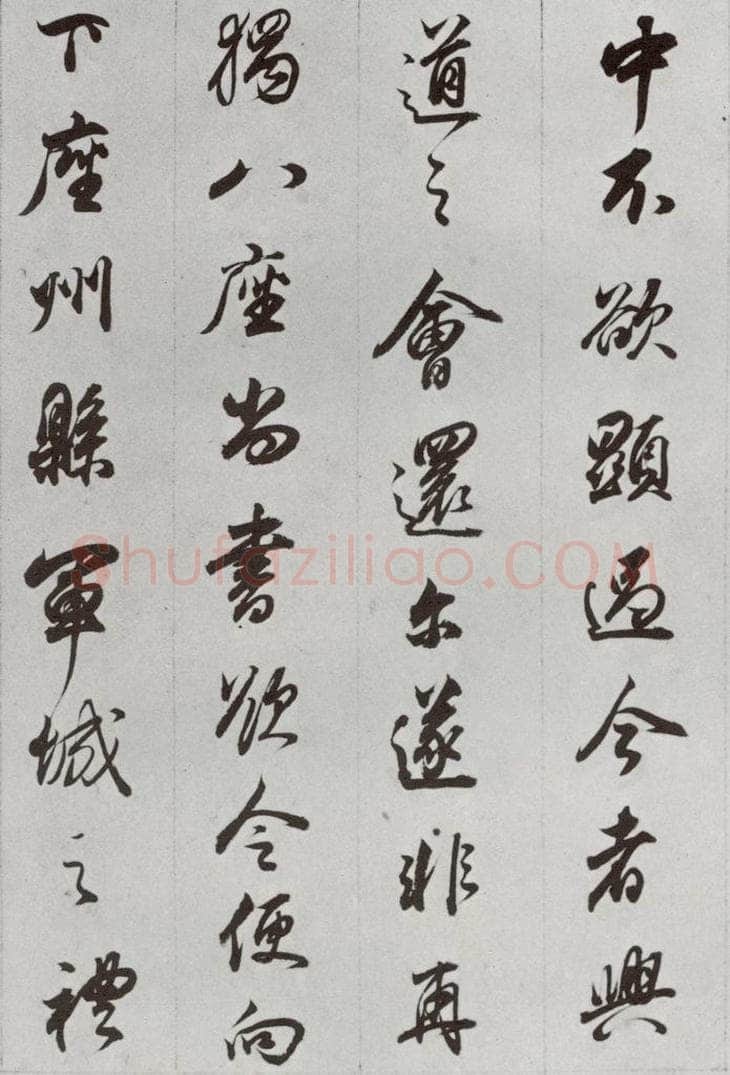 中不欲顯過今者興
道之會還尓遂非再
猲八座尚書欲令便向
下座州縣軍城之禮
Shufaziliao.COM